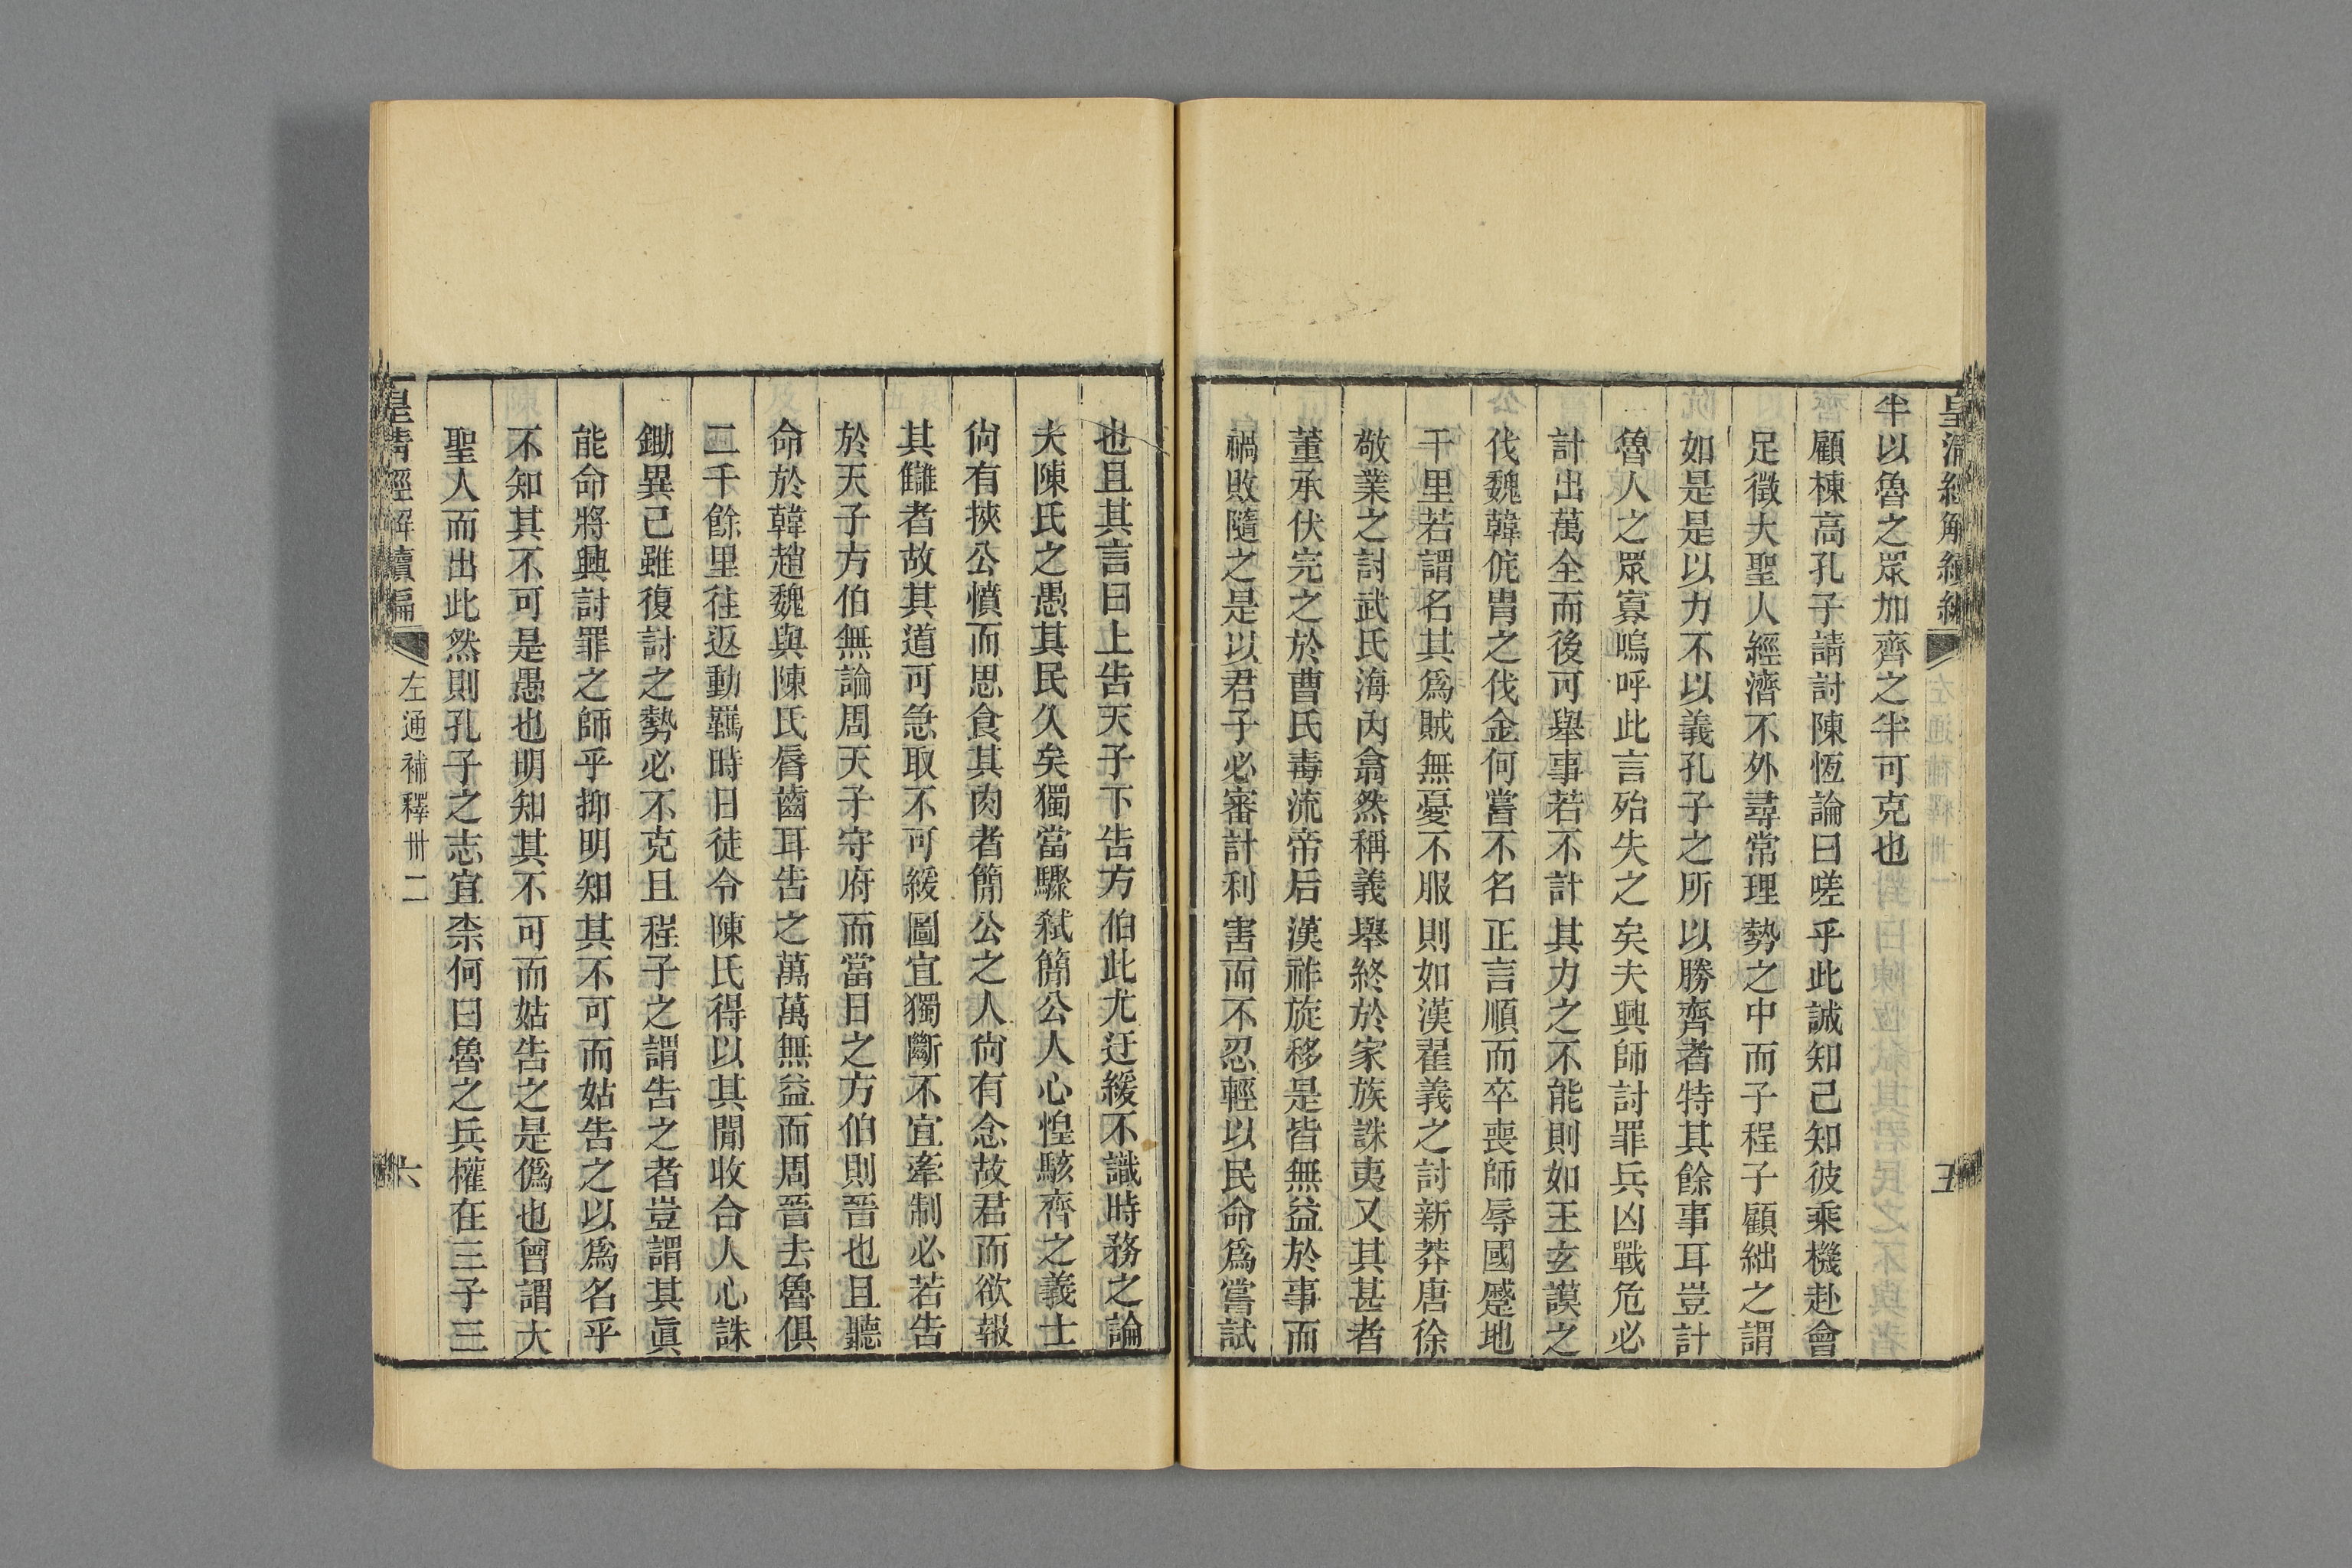 半以魯之眾加齊之半可克也
顧棟高孔子請討陳恆論曰嗟乎此誠知己知彼乘機赴會
足徵大聖人經濟不外尋常理勢之中而子程子顧絀之謂
如是是以力不以義孔子之所以勝齊者特其餘事耳豈計
魯人之眾寡嗚呼此言殆失之矣夫興師討罪兵凶戰危必
計出萬全而後可舉事若不計其力之不能則如王玄謨之
伐魏韓侂胄之伐金何嘗不名正言順而卒喪師辱國蹙地
千里若謂名其爲賊無憂不服則如漢翟義之討新莽唐徐
敬業之討武氏海內翕然稱義舉終於家族誅夷又其甚者
董承伏完之於曹氏毒流帝后漢祚旋移是皆無益於事而
禍敗隨之是以君子必審計利害而不忍輕以民命爲嘗試
也且其言曰上告天子下告方伯此尤迂緩不識時務之論
夫陳氏之愚其民久矣獨當驟弒簡公人心惶駭齊之義士
尙有挾公憤而思食其肉者簡公之人尙有念故君而欲報
其讎者故其道可急取不可緩圖宜獨斷不宜牽制必若告
於天子方伯無論周天子守府而當日之方伯則晉也且聽
命於韓趙魏與陳氏脣齒耳告之萬萬無益而周晉去魯俱
二千餘里往返動羈時日徒令陳氏得以其閒收合人心誅
鋤異己雖復討之勢必不克且程子之謂告之者豈謂其眞
能命將興討罪之師乎抑明知其不可而姑告之以爲名乎
不知其不可是愚也明知其不可而姑告之是僞也曾謂大
聖人而出此然則孔子之志宜柰何曰魯之兵權在三子三
皇清經解續編
左通補釋卅二
六